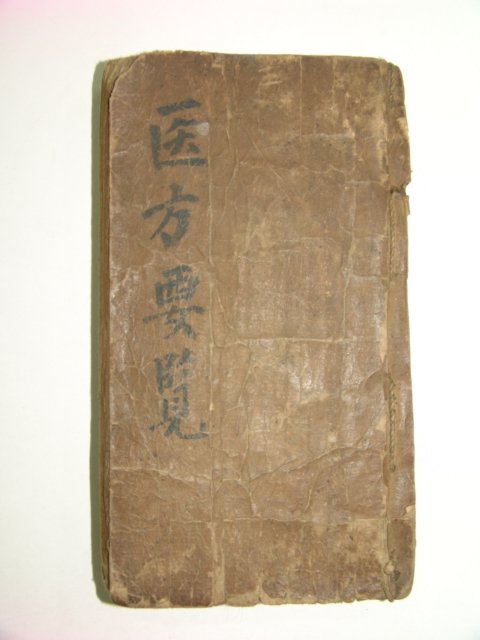 医方要覽